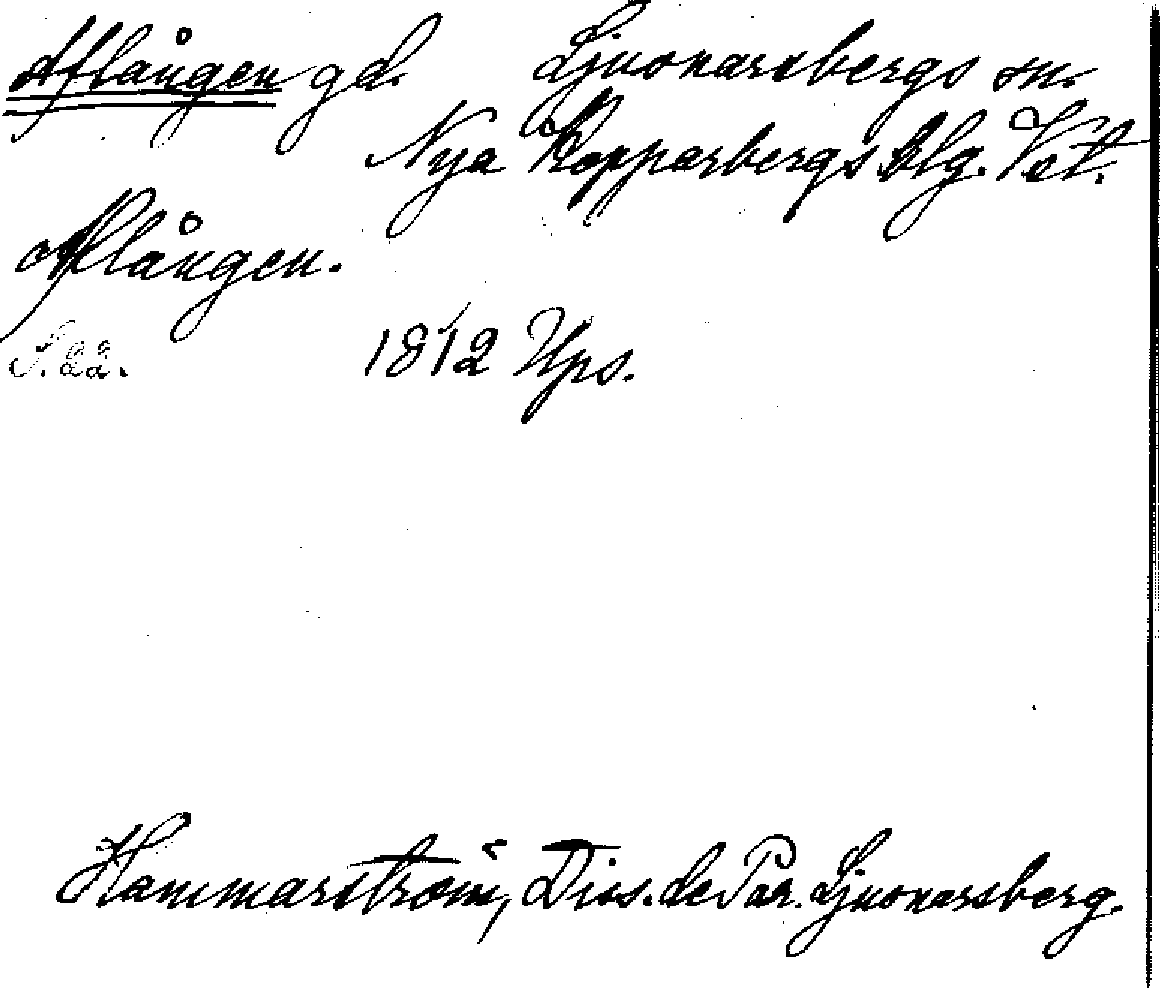 Aflången gd. Ljusnarsbergs sn.
Nya Kopparbergs blg. Vst.
Aflången.
S. 22. 1812 Ups.
Hammarström, Diss. de Par. Ljusnarsberg.